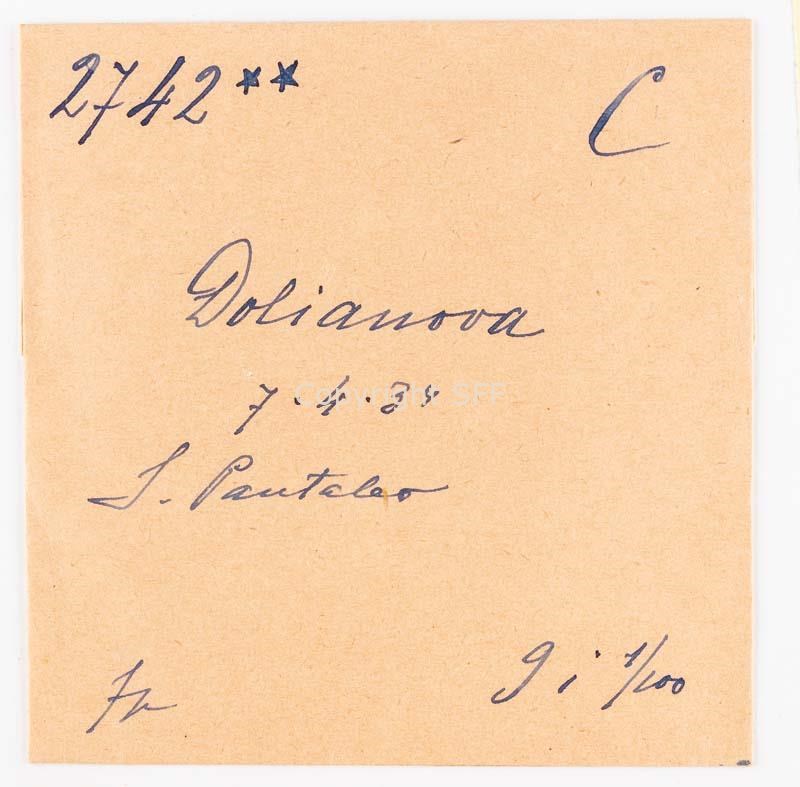 2742** C
Dolianova
7.4.38
Copyright SFF
S. Pantaleo
9 i 1/100